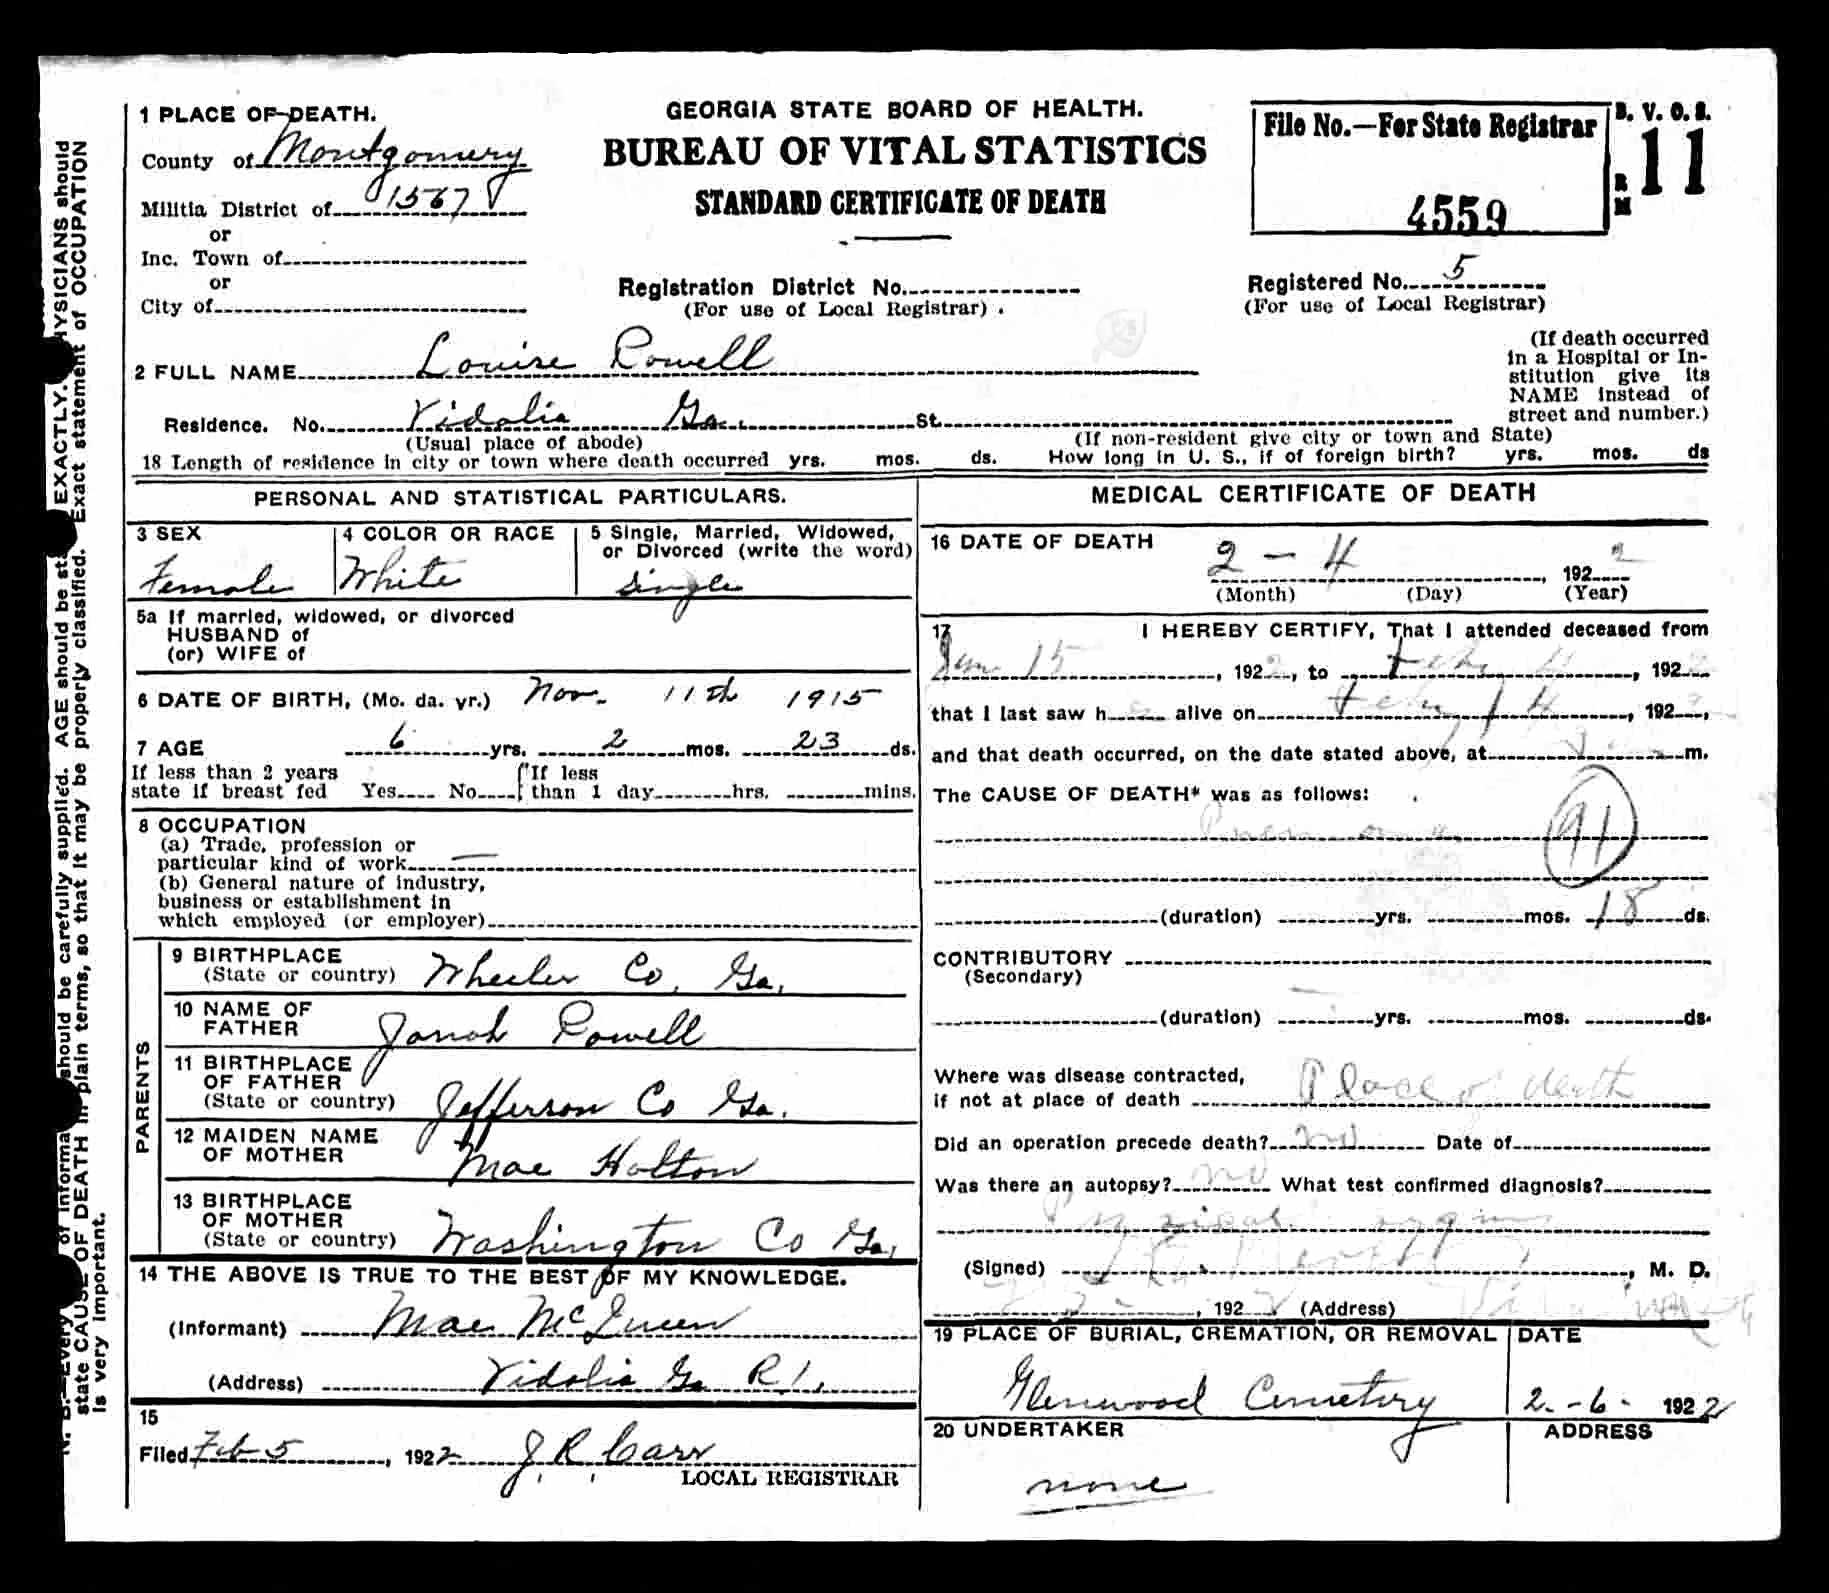 1 PLACE OF DEATH.
County of Montgomery
Militia District of 1567
or
Inc. Town of
or
City of
GEORGIA STATE BOARD OF HEALTH.
BUREAU OF VITAL STATISTICS
STANDARD CERTIFICATE OF DEATH
Registration District No.
(For use of Local Registrar)
File No.—For State Registrar
4559
B. V. O. S.
R M 11
Registered No. 5
(For use of Local Registrar)
2 FULL NAME Louise Powell
(If death occurred
in a Hospital or In-
stitution give its
NAME instead of
street and number.)
Residence. No. Vidalia Ga. St.
(Usual place of abode) (If non-resident give city or town and State)
18 Length of residence in city or town where death occurred yrs. mos. ds. How long in U. S., if of foreign birth? yrs. mos. ds
PERSONAL AND STATISTICAL PARTICULARS.
3 SEX
Female
4 COLOR OR RACE
White
5 Single, Married, Widowed,
or Divorced (write the word)
Single
5a If married, widowed, or divorced
HUSBAND of
(or) WIFE of
6 DATE OF BIRTH, (Mo. da. yr.) Nov. 11th 1915
7 AGE 6 yrs. 2 mos. 23 ds.
If less than 2 years
state if breast fed Yes No
If less
than 1 day hrs. mins.
8 OCCUPATION
(a) Trade, profession or
particular kind of work —
(b) General nature of industry,
business or establishment in
which employed (or employer)
PARENTS
9 BIRTHPLACE
(State or country) Wheeler Co, Ga.
10 NAME OF
FATHER Jonah Powell
11 BIRTHPLACE
OF FATHER
(State or country) Jefferson Co Ga.
12 MAIDEN NAME
OF MOTHER Mae Holton
13 BIRTHPLACE
OF MOTHER
(State or country) Washington Co Ga,
14 THE ABOVE IS TRUE TO THE BEST OF MY KNOWLEDGE.
(Informant) Mae McQueen
(Address) Vidalia Ga R1.
15
Filed Feb 5, 1922 J. R. Carr
LOCAL REGISTRAR
MEDICAL CERTIFICATE OF DEATH
16 DATE OF DEATH 2 - 4, 1922
(Month) (Day) (Year)
17 I HEREBY CERTIFY, That I attended deceased from
Jan 15, 1922, to Feby 4, 1922
that I last saw h alive on Feby 4, 192
and that death occurred, on the date stated above, at m.
The CAUSE OF DEATH* was as follows:
Pneumonia 91
(duration) yrs. mos. 18 ds.
CONTRIBUTORY
(Secondary)
(duration) yrs. mos. ds.
Where was disease contracted,
if not at place of death Place of death
Did an operation precede death? no Date of
Was there an autopsy? no What test confirmed diagnosis?
(Signed) , M. D.
, 192 (Address)
19 PLACE OF BURIAL, CREMATION, OR REMOVAL
Glenwood Cemetery
DATE
2-6- 1922
20 UNDERTAKER
none
ADDRESS
N. B.—Every of informa should be carefully supplied. AGE should be sta EXACTLY. HYSICIANS should
state CAUSE OF DEATH in plain terms, so that it may be properly classified. Exact statement of OCCUPATION
is very important.